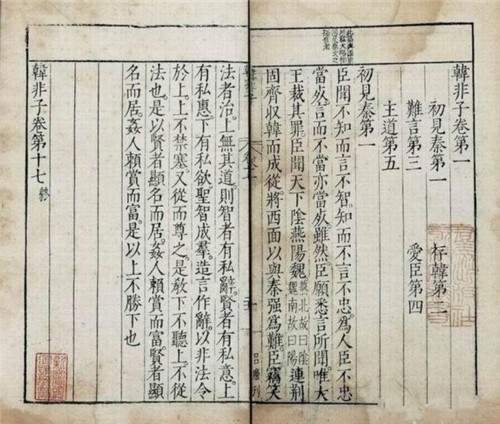 韓非子卷第一
初見秦第一　存韓第二
難言第三　愛臣第四
主道第五
初見秦第一
臣聞不知而言不智知而不言不忠為人臣不忠
當死言而不當亦當死雖然臣願悉言所聞唯大
王裁其罪臣聞天下陰燕陽魏燕北故曰陰魏南故曰陽連荆
固齊収韓而成從將西面以與秦强為難臣竊笑
法者治上無其道則智者有私辭賢者有私意上
有私惠下有私欲聖智成羣造言作辭以非法令
於上上不禁塞又從而尊之是敎下不聽上不從
法也是以賢者顯名而居姦人賴賞而富賢者顯
名而居姦人賴賞而富是以上不勝下也
韓非子卷第十七　終